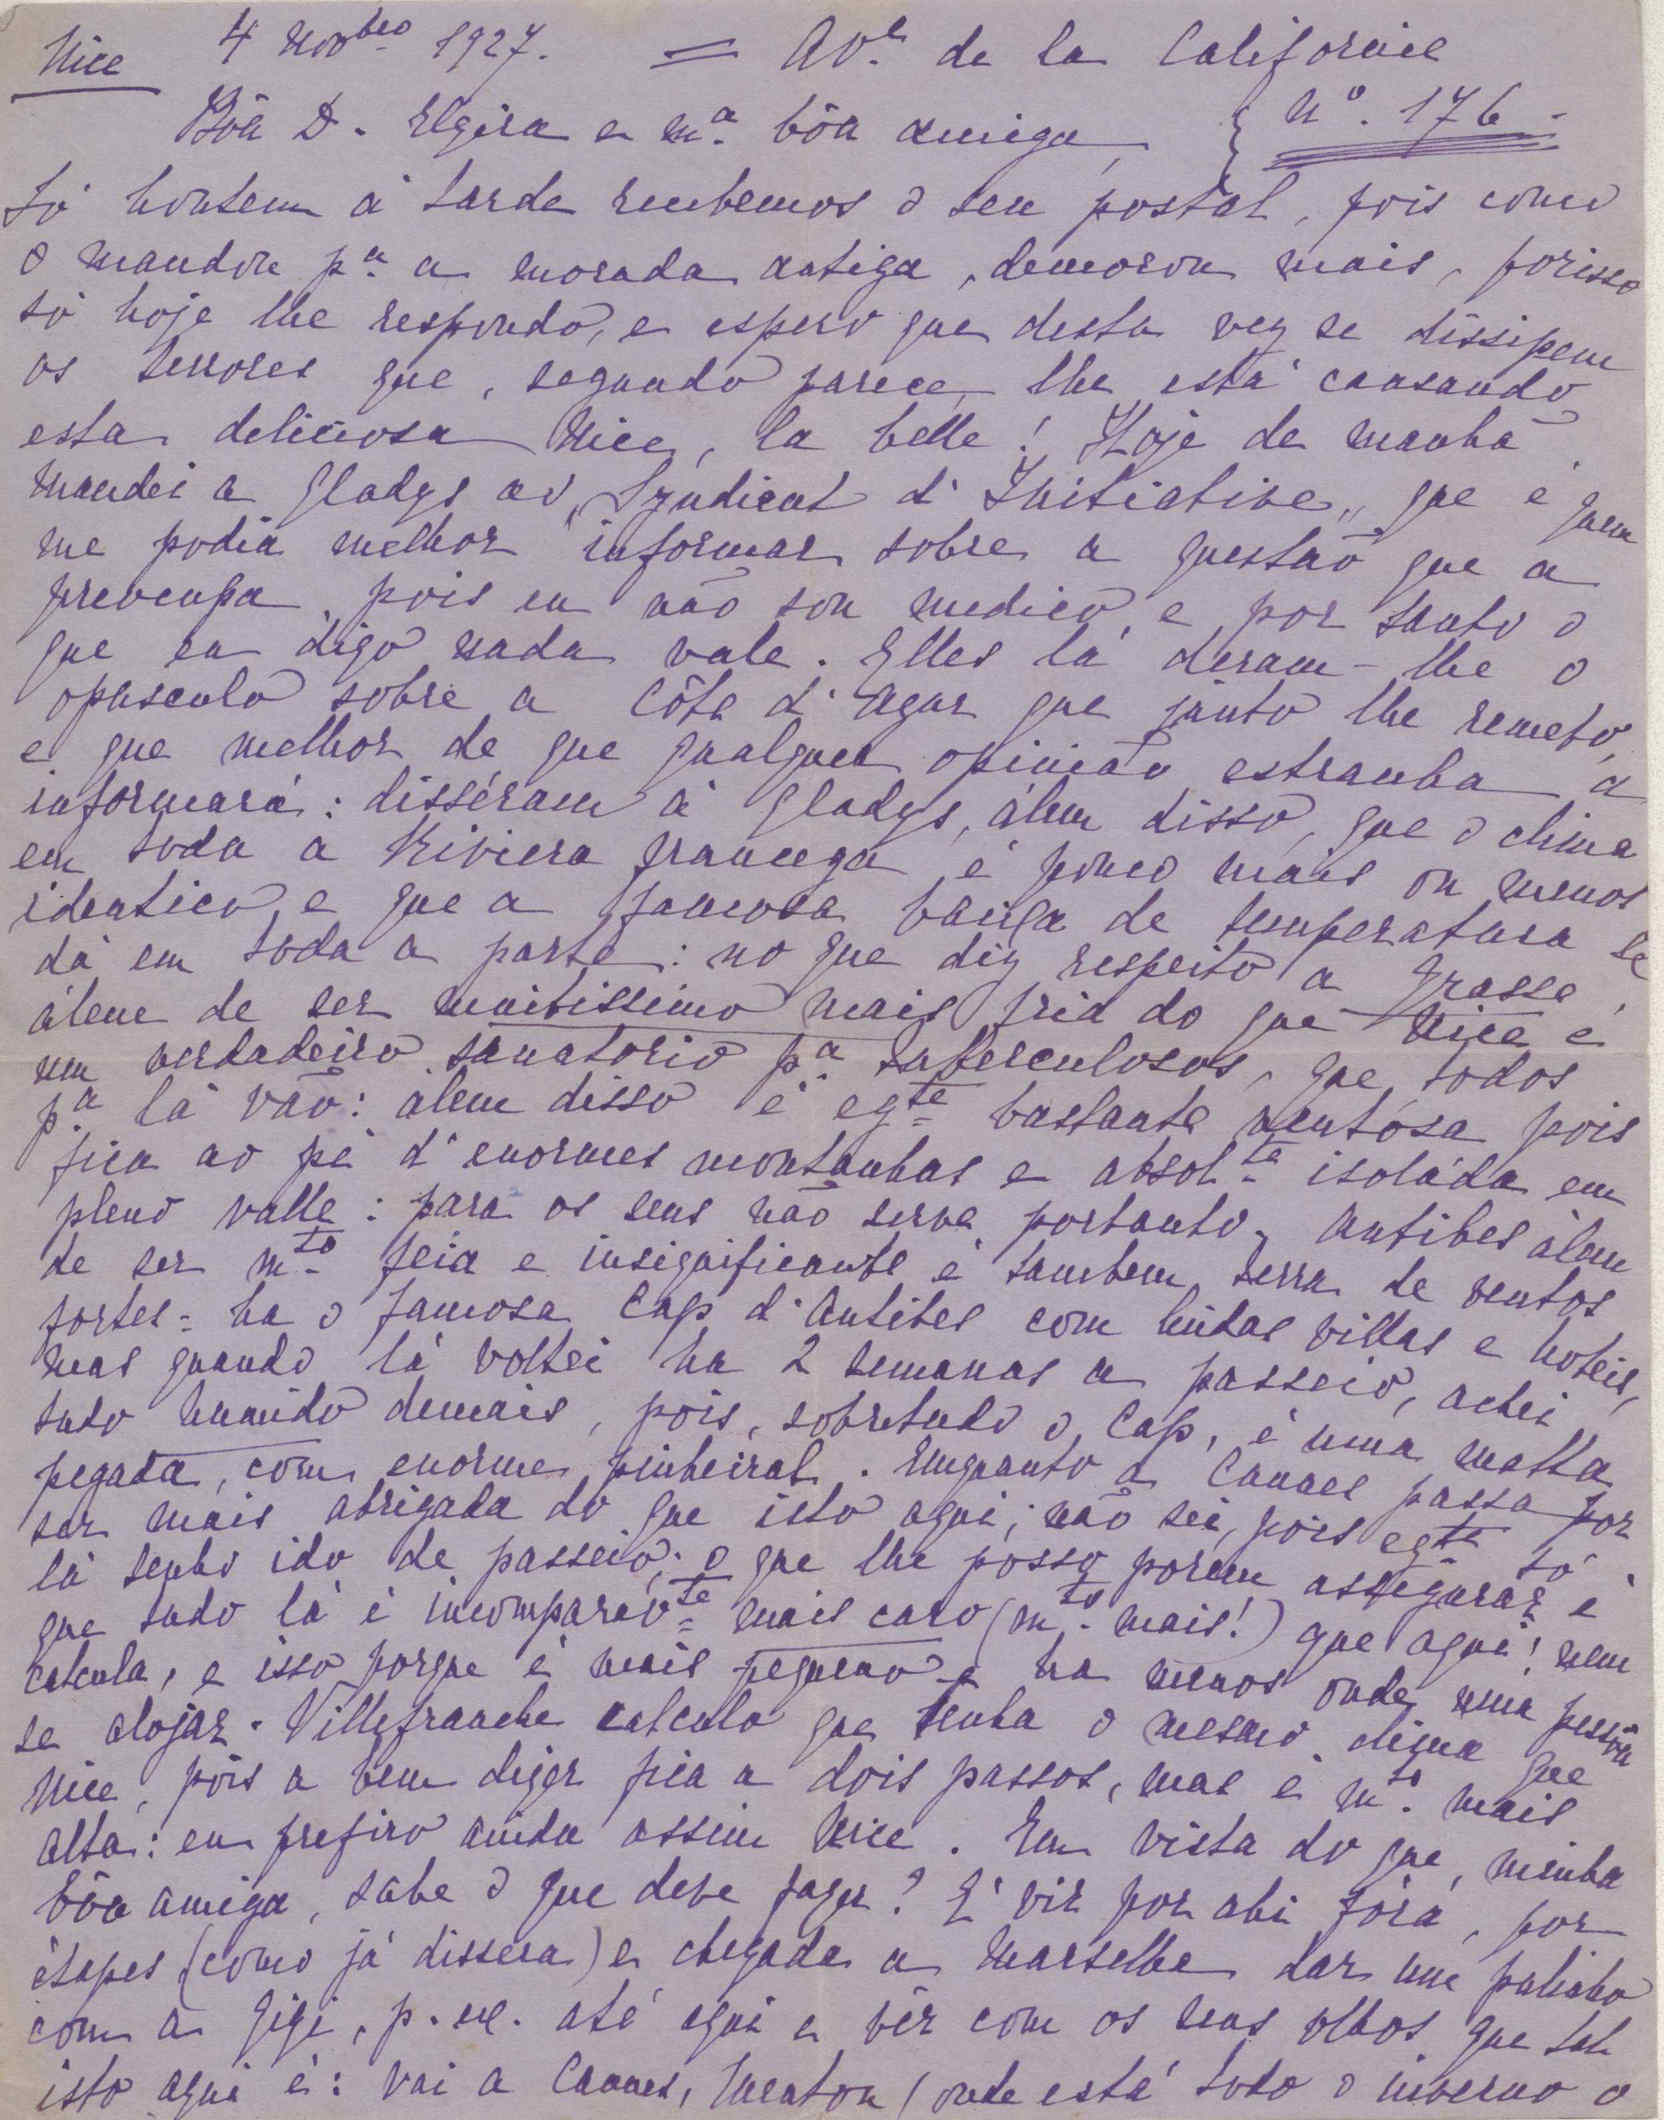 Nice 4 Novbro 1927. = Ave. de la Californie
Bôa D. Elzira e ma. bôa amiga, { No. 176 -
Só hontem á tarde recebemos o seu postal, pois como
o mandou pa. a morada antiga, demorou mais, porisso
só hoje lhe respondo, e espero que desta vez se dissipem
os terrores que, segundo parece, lhe está causando
esta deliciosa Nice, la belle! Hoje de manhã
mandei a Gladys ao "Syndicat d'Initiative" que é quem
me podia melhor informar sobre a questão que a
preocupa, pois eu não sou medico, e por tanto o
que eu digo nada vale. Elles lá deram-lhe o
opusculo sobre a Côte d'Azur que junto lhe remeto,
e que melhor de que qualquer opinião estranha a
informará: disséram á Gladys, álem disso, que o clima
em toda a Riviera franceza é pouco mais ou menos
identico, e que a famosa baixa de temperatura se
dá em toda a parte: no que diz respeito a Grasse,
álem de ser muitissimo mais fria do que Nice é
um verdadeiro sanatorio pa. tuberculosos, que todos
pa. lá vão: álem disso é egte. bastante ventósa pois
fica ao pé d'enormes montanhas e absolte. isoláda em
pleno valle: para os seus não serve, portanto. Antibes álem
de ser mto. feia e insignificante é tambem terra de ventos
fortes: ha o famoso Cap d'Antibes com lindas villas e hoteis,
mas quando lá voltei ha 2 semanas a passeio, achei
tudo humido demais, pois, sobretudo o Cap, é uma matta
pegada, com enorme pinheiral. Emquanto a Cannes passa por
ser mais abrigada do que isto aqui; não sei, pois egte. só
lá tenho ido de passeio; o que lhe posso porém assegurar é
que tudo lá é incomparávte. mais caro (mto. mais!) que aqui! nem
calcula, e isso porque é mais pequeno e ha menos onde uma pessôa
se alojar. Villefranche calculo que tenha o mesmo clima que
Nice, pois a bem dizer fica a dois passos, mas é mto. mais
alta: eu prefiro ainda assim Nice. Em vista do que, minha
bôa amiga, sabe o que deve fazer? E' vir por ahi fóra, por
étapes (como já dissera) e chegada a Marselha dar um pulinho
com a Gigi, p. ex. até aqui e vêr com os seus olhos que tal
isto aqui é: vai a Cannes, Menton (onde está todo o inverno o